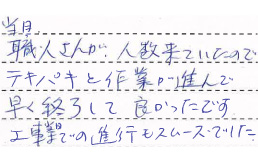 当日
職人さんが、人数来ていたので
テキパキと作業が進んで
早く終了して 良かったです
工事での進行もスムーズでした